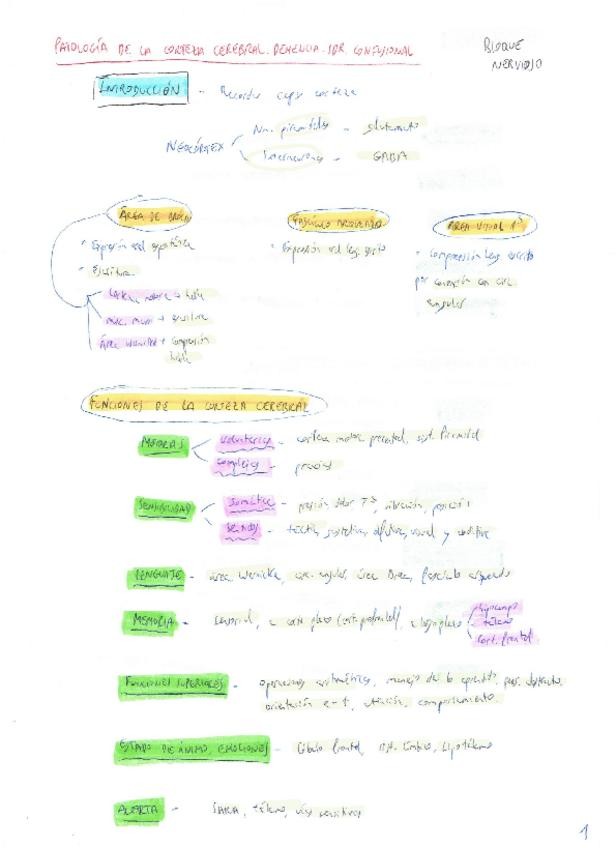 PATOLOGÍA DE LA CORTEZA CEREBRAL. DEMENCIA. SDR. CONFUSIONAL
BLOQUE
NERVIOSO
INTRODUCCIÓN - Recordar capas corteza
NEOCÓRTEX
Nn. piramidales - glutamato
Interneuronas - GABA
ÁREA DE BROCA
FASCÍCULO ARQUEADO
ÁREA VISUAL 1ª
Expresión oral espontánea
Expresión oral leng. escrito
Comprensión leng. escrito
Escritura
por conexión con circ.
angular
Corteza motora → habla
mano → escritura
Área Wernicke → comprensión
habla
FUNCIONES DE LA CORTEZA CEREBRAL
MOTORAS
voluntarias - corteza motora prerrolandi, sist. Piramidal
complejas - praxias
SENSIBILIDAD
somática - presión, dolor, Tª, vibración, posición
táctil, gustativa, olfativa, visual y auditiva
LENGUAJE - área Wernicke, circ. angular, área Broca, fascículo arqueado
MEMORIA - sensorial, a corto plazo (cort. prefrontal), a largo plazo
hipocampo
tálamo
cort. frontal
FUNCIONES SUPERIORES - operaciones aritméticas, manejo de lo aprendido, pens. abstracto,
orientación e-t, atención, comportamiento
ESTADO DE ÁNIMO, EMOCIONES - lóbulo frontal, sist. límbico, hipotálamo
ALERTA - SARA, tálamo, vías sensitivas
1